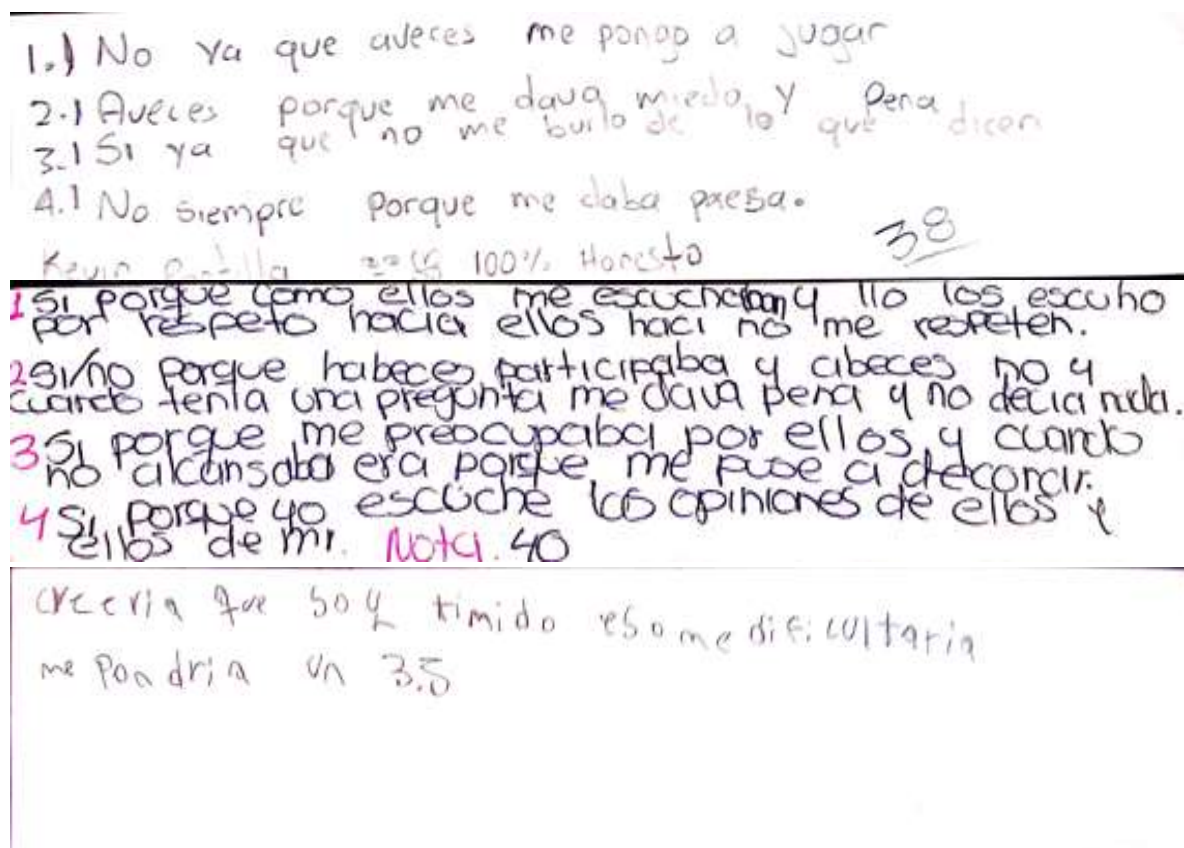 1.) No ya que aveces me pongo a jugar
2.) Aveces porque me dava miedo y pena
3.) Si ya que no me burlo de lo que dicen
4.) No siempre porque me daba paesa.
38
Kevin 100% Honesto
1 Si porque como ellos me escuchaban y llo los escuho
por respeto hacia ellos haci no me respeten.
2 Si/no porque habeces participaba y abeces no y
cuando tenia una pregunta me dava pena y no decia nada.
3 Si porque me preocupaba por ellos y cuando
no alcansaba era porque me puse a decorar.
4 Si porque yo escuche las opiniones de ellos y
ellos de mi. Nota. 40
creeria que soy timido eso me dificultaria
me pondria un 3.5